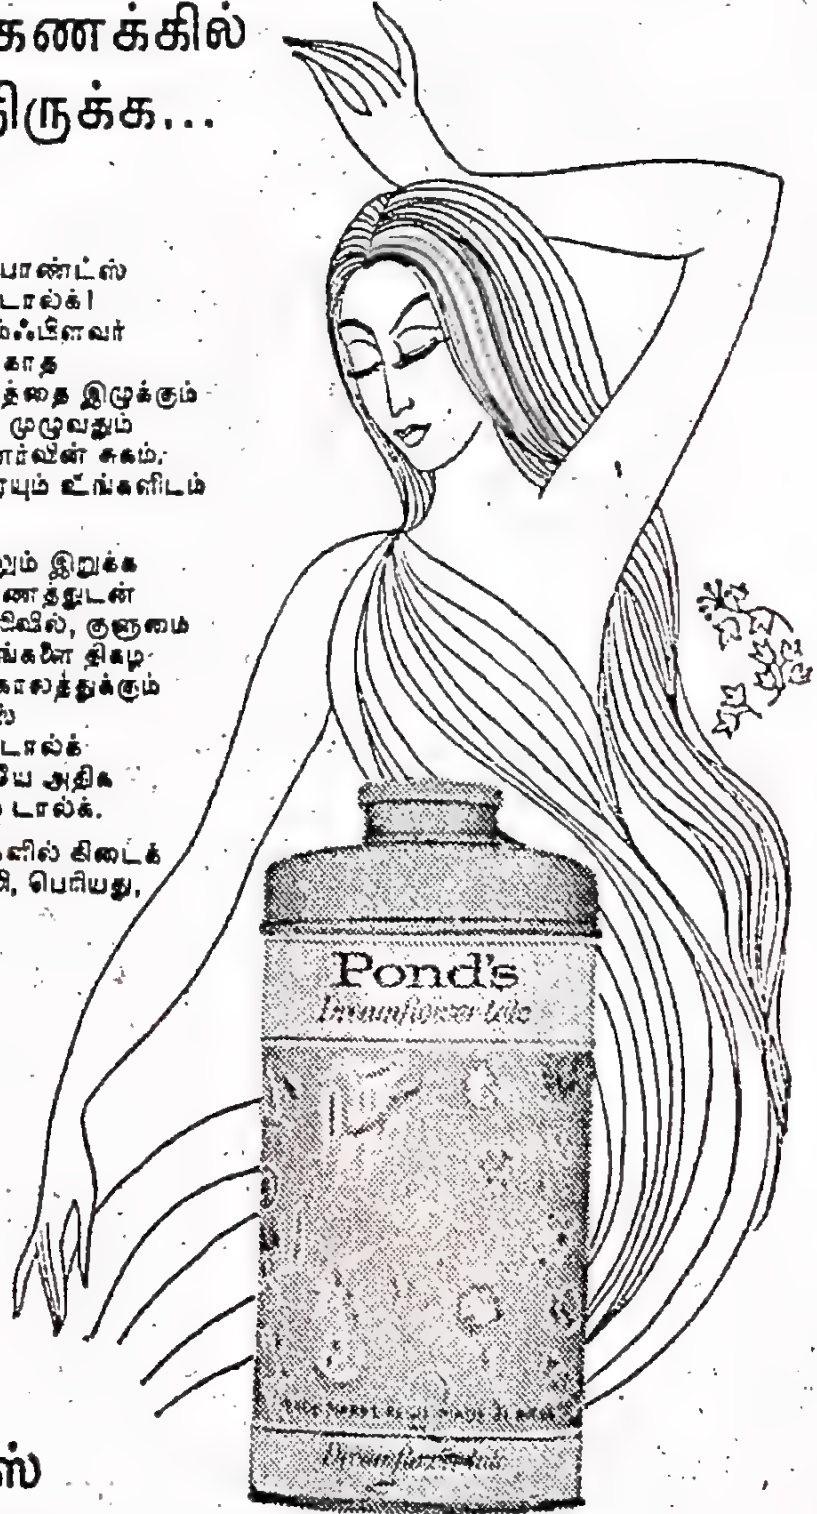 கணக்கில்
திருக்க...
பாண்ட்ஸ்
டால்க்!
ம்ஃபிளவர்
காத
த்தை இழுக்கும்
முழுவதும்
ணர்வின் சுகம்.
ரயும் உங்களிடம்
லும் இறுக்க
ணத்துடன்
வில், குளுமை
ங்களை திகழ
காலத்துக்கும்
ஸ்
டால்க்
யே அதிக
டால்க்.
களில் கிடைக்
பெரியது,
Pond's
Dreamflower talc
Dreamflower talc
ஸ்